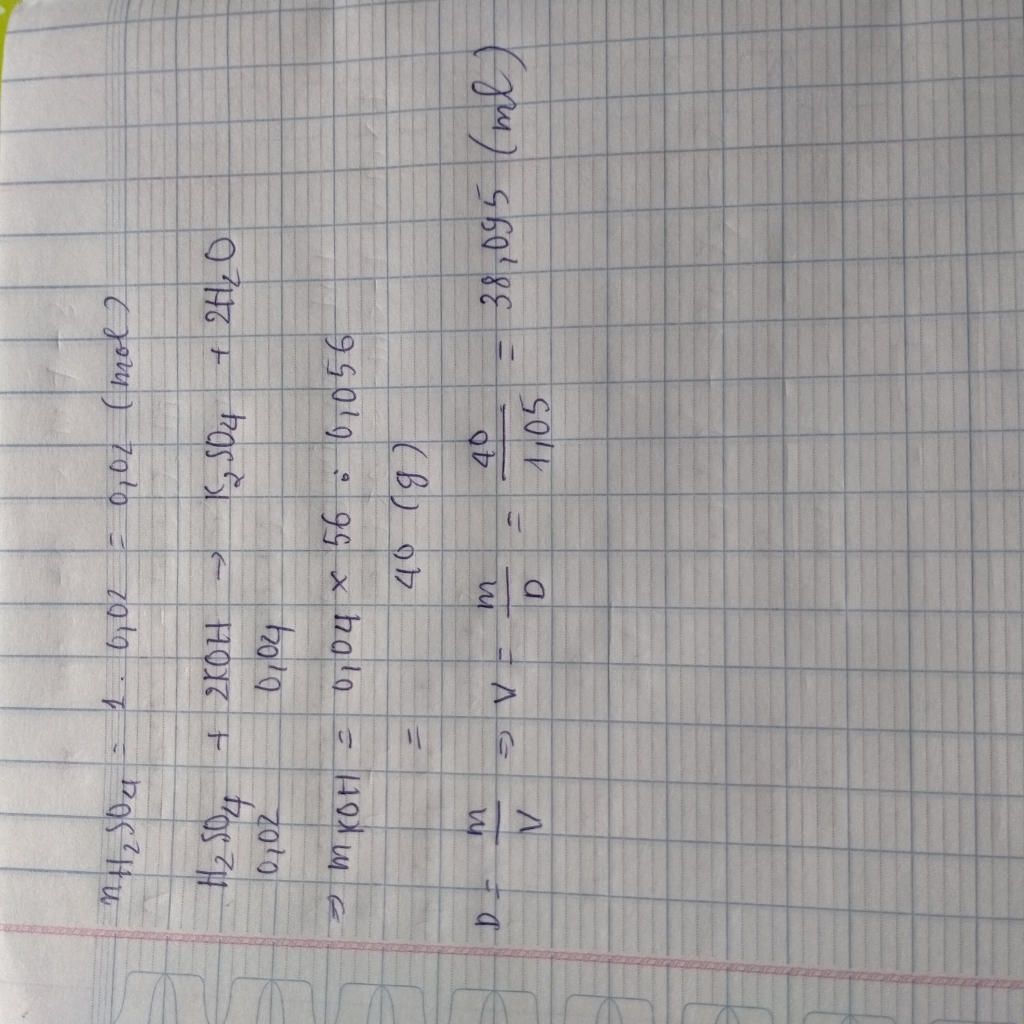 nH₂SO₄ = 1 . 0,02 = 0,02 (mol)
H₂SO₄ + 2KOH → K₂SO₄ + 2H₂O
0,02 0,04
⇒ mKOH = 0,04 × 56 : 0,056
= 40 (g)
D = m/V ⇒ V = m/D = 40/1,05 = 38,095 (ml)